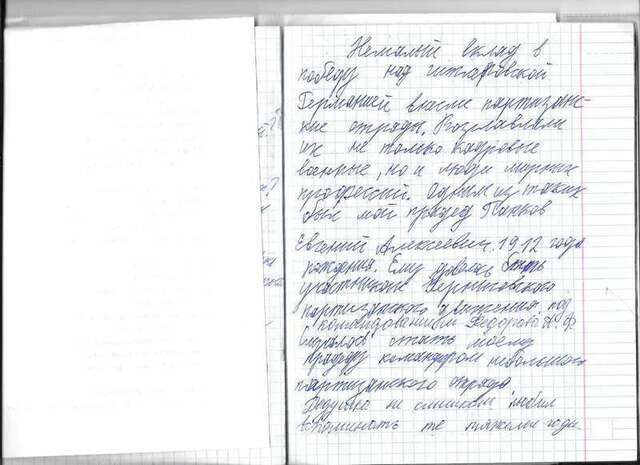 Немалый вклад в
победу над гитлеровской
Германией внесли партизанс-
кие отряды. Возглавляли
их не только кадровые
военные, но и люди мирных
профессий. Одним из таких
был мой прадед Паньков
Евгений Алексеевич 1912 года
рождения. Ему довелось быть
участником Черниговского
партизанского движения под
командованием Федорова А. Ф.
стать моему
прадеду командиром небольшого
партизанского отряда.
Дедушка не слишком любил
вспоминать те тяжелые годы